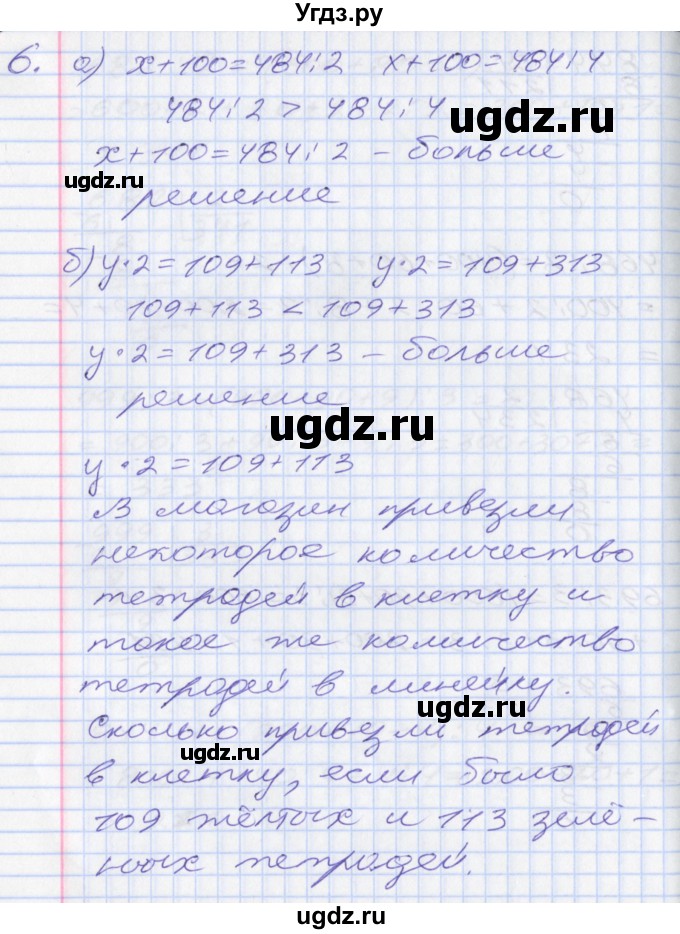 Угдз.ру
6. а) x+100=484:2 x+100=484:4
484:2 > 484:4
ugdz.ru
x+100=484:2 – больше
ugdz.ru
решение
б) y·2=109+113 y·2=109+313
109+113 < 109+313
y·2=109+313 – больше
решение
ugdz.ru
y·2=109+113
В магазин привезли
некоторое количество
тетрадей в клетку и
такое же количество
тетрадей в линейку.
ugdz.ru
Сколько привезли тетрадей
ugdz.ru
в клетку, если было
109 жёлтых и 113 зелё-
ных тетрадей.
ugdz.ru